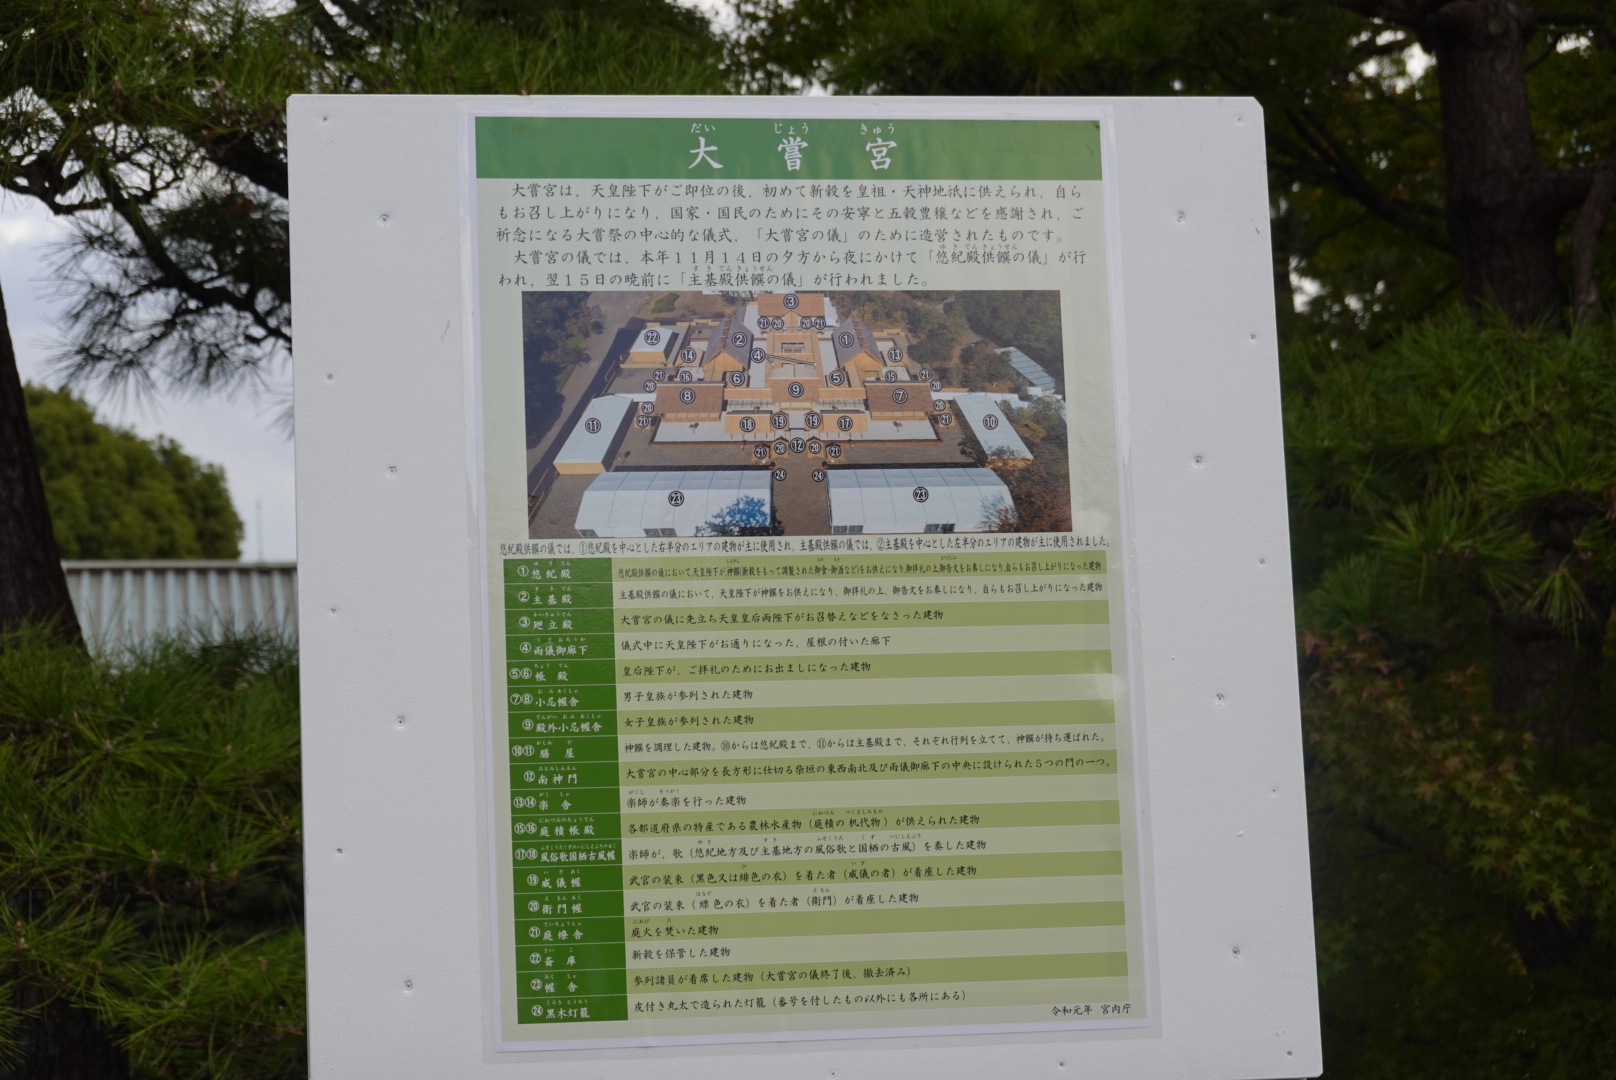 だい じょう きゅう
大嘗宮
大嘗宮は，天皇陛下がご即位の後，初めて新穀を皇祖・天神地祇に供えられ，自ら
もお召し上がりになり，国家・国民のためにその安寧と五穀豊穣などを感謝され，ご
祈念になる大嘗祭の中心的な儀式，「大嘗宮の儀」のために造営されたものです。
ゆきでんきょうせん
大嘗宮の儀では，本年１１月１４日の夕方から夜にかけて「悠紀殿供饌の儀」が行
すきでんきょうせん
われ，翌１５日の暁前に「主基殿供饌の儀」が行われました。
③
㉑ ⑳ ⑳ ㉑
㉒ ② ①
⑭ ④ ⑬
㉑ ⑯ ⑥ ⑤ ⑮ ㉑
⑳ ⑧ ⑨ ⑦ ⑳
⑳ ⑳
㉑ ⑪ ⑱ ⑲ ⑲ ⑰ ㉑ ⑩
㉑ ⑳ ⑫ ⑳ ㉑
㉔ ㉔
㉓ ㉓
悠紀殿供饌の儀では，①悠紀殿を中心とした右半分のエリアの建物が主に使用され，主基殿供饌の儀では，②主基殿を中心とした左半分のエリアの建物が主に使用されました。
ゆきでん
①悠紀殿 悠紀殿供饌の儀において，天皇陛下が神饌(新穀をもって調製された御食・御酒など)をお供えになり，御拝礼の上，御告文をお奏しになり，自らもお召し上がりになった建物
すきでん
②主基殿 主基殿供饌の儀において，天皇陛下が神饌をお供えになり，御拝礼の上，御告文をお奏しになり，自らもお召し上がりになった建物
かいりゅうでん
③廻立殿 大嘗宮の儀に先立ち天皇皇后両陛下がお召替えなどをなさった建物
④雨儀御廊下 儀式中に天皇陛下がお通りになった，屋根の付いた廊下
ちょうでん
⑤⑥帳殿 皇后陛下が，ご拝礼のためにお出ましになった建物
おみあくしゃ
⑦⑧小忌幄舎 男子皇族が参列された建物
でんがいおみあくしゃ
⑨殿外小忌幄舎 女子皇族が参列された建物
かしわや
⑩⑪膳屋 神饌を調理した建物。⑩からは悠紀殿まで，⑪からは主基殿まで，それぞれ行列を立てて，神饌が持ち運ばれた。
みなみしんもん
⑫南神門 大嘗宮の中心部分を長方形に仕切る柴垣の東西南北及び雨儀御廊下の中央に設けられた５つの門の一つ。
がくしゃ がくし そうがく
⑬⑭楽舎 楽師が奏楽を行った建物
にわづみのちょうでん にわづみ つくえしろもの
⑮⑯庭積帳殿 各都道府県の特産である農林水産物（庭積の机代物）が供えられた建物
ゆき すき ふぞくうた くず いにしえぶり
⑰⑱風俗歌国栖古風幄 楽師が，歌（悠紀地方及び主基地方の風俗歌と国栖の古風）を奏した建物
いぎあく ひ いぎ
⑲威儀幄 武官の装束（黒色又は緋色の衣）を着た者（威儀の者）が着座した建物
えもんあく はなだ えもん
⑳衛門幄 武官の装束（縹色の衣）を着た者（衛門）が着座した建物
ていりょうしゃ にわび た
㉑庭燎舎 庭火を焚いた建物
さいこ
㉒斎庫 新穀を保管した建物
あくしゃ
㉓幄舎 参列諸員が着席した建物（大嘗宮の儀終了後，撤去済み）
くろきとうろう
㉔黒木灯籠 皮付き丸太で造られた灯籠（番号を付したもの以外にも各所にある）
令和元年 宮内庁